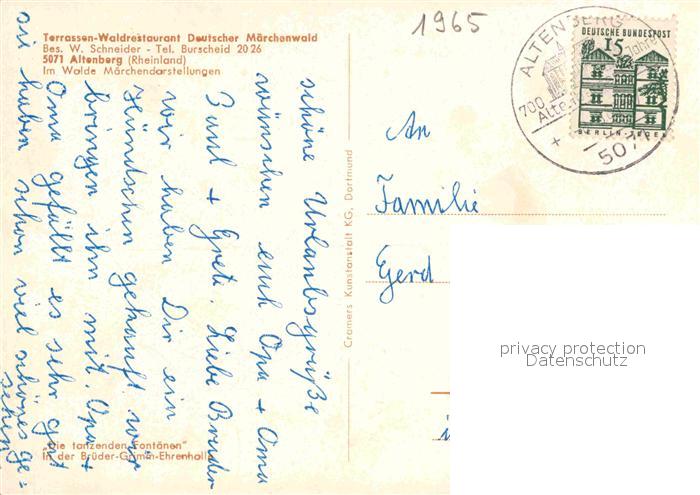 Terrassen-Waldrestaurant Deutscher Märchenwald
Bes. W. Schneider - Tel. Burscheid 20 26
5071 Altenberg (Rheinland)
Im Walde Märchendarstellungen
1965
ALTENBERG
700 Jahre
Alte
+
5071
DEUTSCHE BUNDESPOST
15
BERLIN-TEGEL
schöne Urlaubsgrüße
wünschen euch Opa + Oma
und + Grete. Liebe Bruder
wir haben Dir ein
Hündchen gekauft wir
bringen ihn mit. Opa +
Oma gefällt es sehr gut
sie haben schon viel schönes ge=
sehen
An
Familie
Gerd
Cramers Kunstanstalt KG, Dortmund
privacy protection
Datenschutz
„Die tanzenden Fontänen"
in der Brüder-Grimm-Ehrenhalle